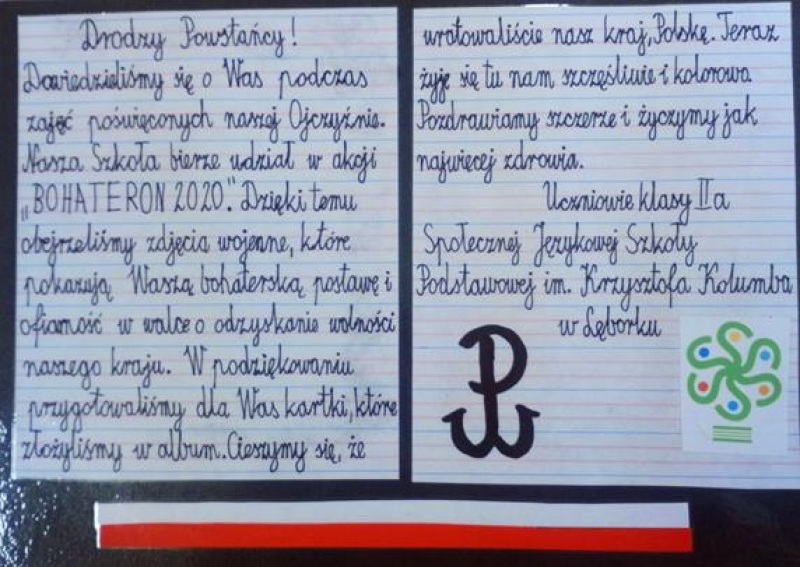 Drodzy Powstańcy!
Dowiedzieliśmy się o Was podczas
zajęć poświęconych naszej Ojczyźnie.
Nasza Szkoła bierze udział w akcji
„BOHATERON 2020." Dzięki temu
obejrzeliśmy zdjęcia wojenne, które
pokazują Waszą bohaterską postawę i
ofiarność w walce o odzyskanie wolności
naszego kraju. W podziękowaniu
przygotowaliśmy dla Was kartki, które
złożyliśmy w album. Cieszymy się, że
uratowaliście nasz kraj, Polskę. Teraz
żyje się tu nam szczęśliwie i kolorowo
Pozdrawiamy szczerze i życzymy jak
najwięcej zdrowia.
Uczniowie klasy II a
Społecznej Językowej Szkoły
Podstawowej im. Krzysztofa Kolumba
w Lęborku